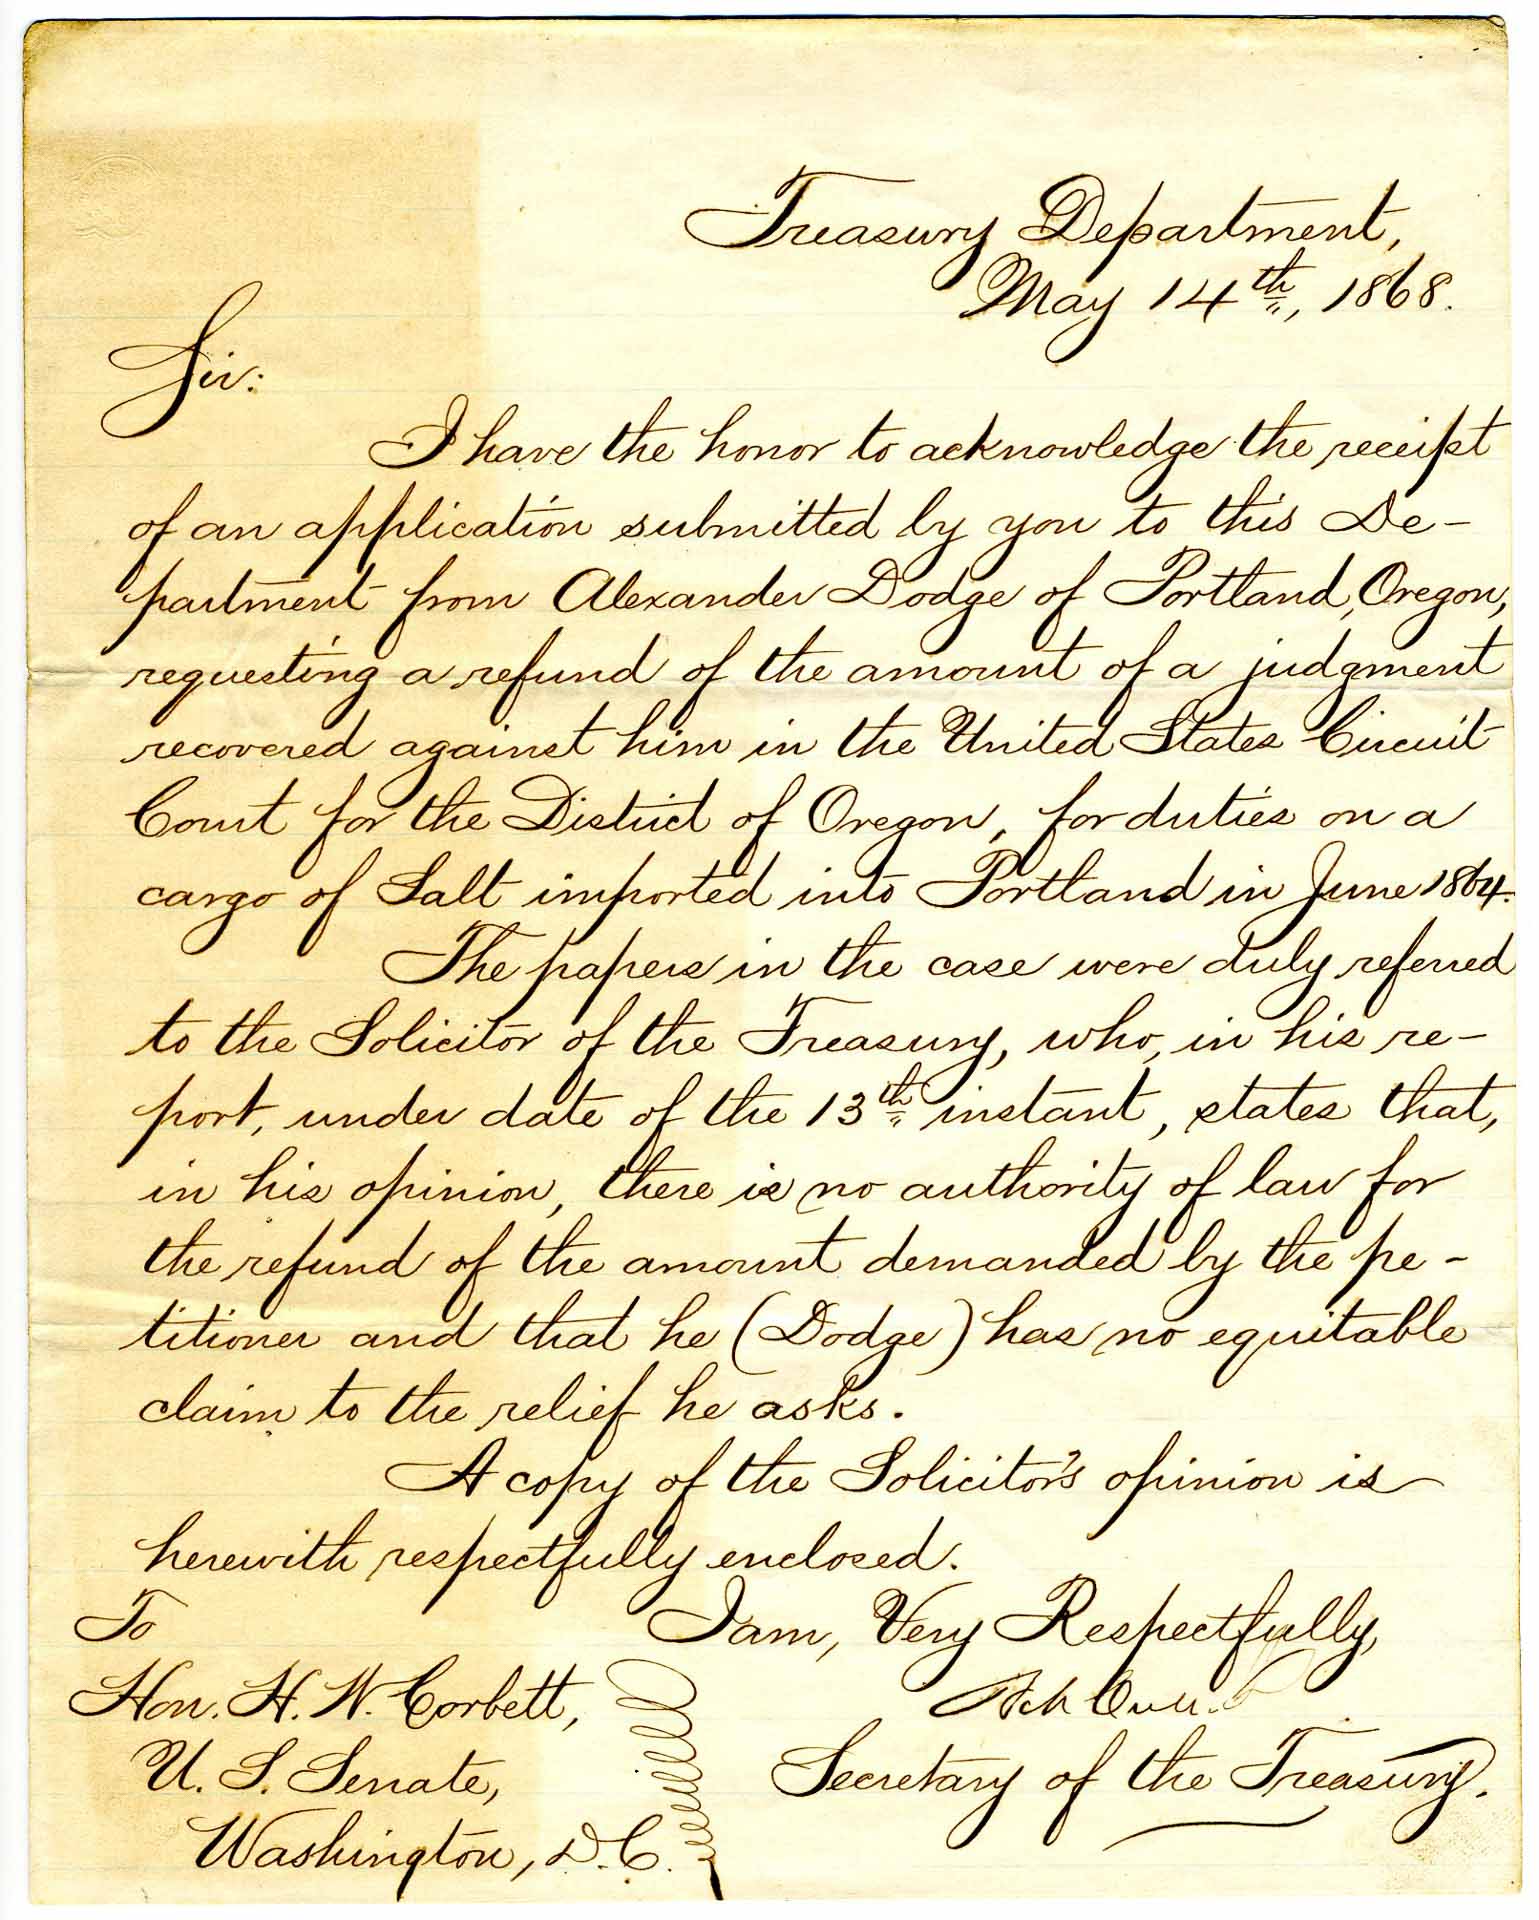 Treasury Department,
May 14th, 1868.
Sir:
I have the honor to acknowledge the receipt
of an application submitted by you to this De-
partment from Alexander Dodge of Portland, Oregon,
requesting a refund of the amount of a judgment
recovered against him in the United States Circuit
Court for the District of Oregon, for duties on a
cargo of Salt imported into Portland in June 1864.
The papers in the case were duly referred
to the Solicitor of the Treasury, who, in his re-
port, under date of the 13th instant, states that,
in his opinion, there is no authority of law for
the refund of the amount demanded by the pe-
titioner and that he (Dodge) has no equitable
claim to the relief he asks.
A copy of the Solicitor's opinion is
herewith respectfully enclosed.
I am, Very Respectfully,
Secretary of the Treasury.
To
Hon. H. W. Corbett,
U. S. Senate,
Washington, D.C.